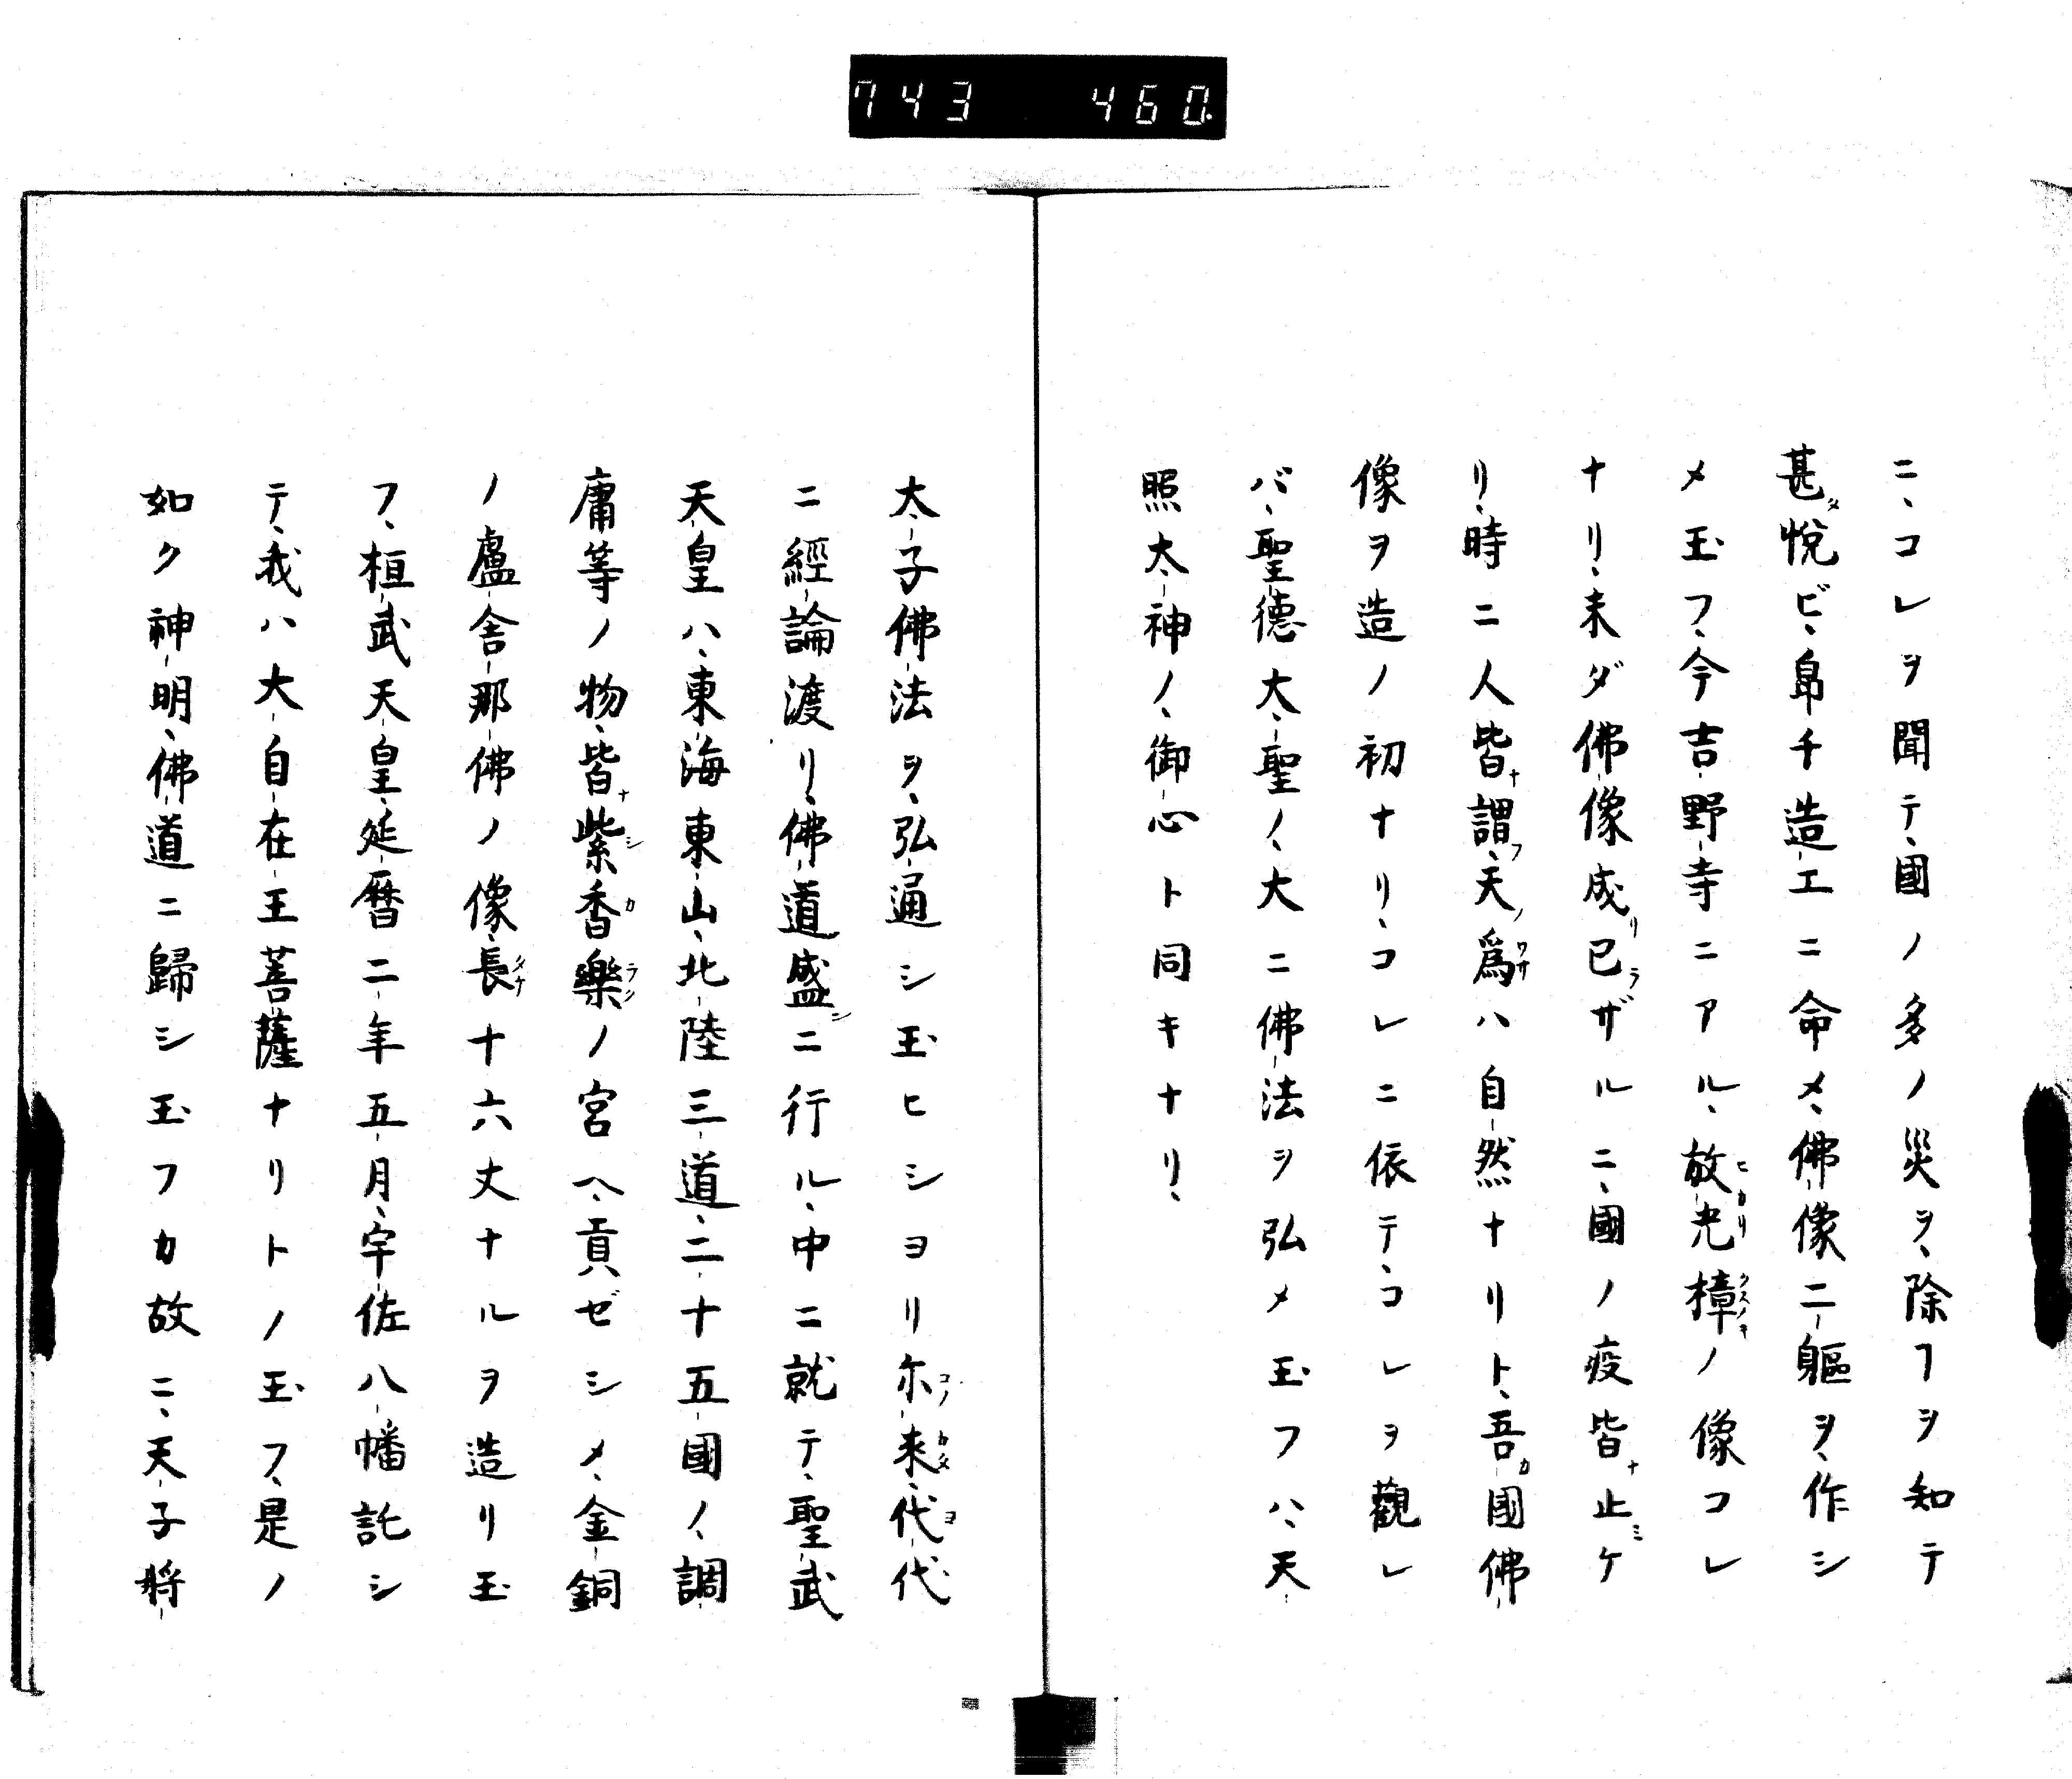 743 460
ニ、コレヲ聞テ、國ノ多ノ災ヲ、除フヿヲ知テ
甚タ悦ビ、帛千造エニ命メ、佛像二軀ヲ、作シ
メ玉フ、今吉野寺ニアル、放光樟ノ像コレ
ナリ、未ダ佛像成リ已ラザルニ、國ノ疫皆ナ止ミケ
リ、時ニ人皆ナ謂フ、天ノ爲ハ自然ナリト、吾カ國佛
像ヲ造ノ初ナリ、コレニ依テ、コレヲ觀レ
バ、聖德大聖ノ、大ニ佛法ヲ弘メ玉フハ、天
照太神ノ、御心ト同キナリ、
太子佛法ヲ、弘通シ玉ヒシヨリ尓來、代代
ニ經論渡リ、佛道盛ンニ行ル、中ニ就テ、聖武
天皇ハ、東海東山、北陸三道、二十五國ノ、調
庸等ノ物、皆ナ紫香樂ノ宮ヘ、貢ゼシメ、金銅
ノ盧舎那佛ノ像、長十六丈ナルヲ造リ玉
フ、桓武天皇、延暦二年五月、宇佐八幡託シ
テ、我ハ大自在王菩薩ナリトノ玉フ、是ノ
如ク神明、佛道ニ歸シ玉フカ故ニ、天子將